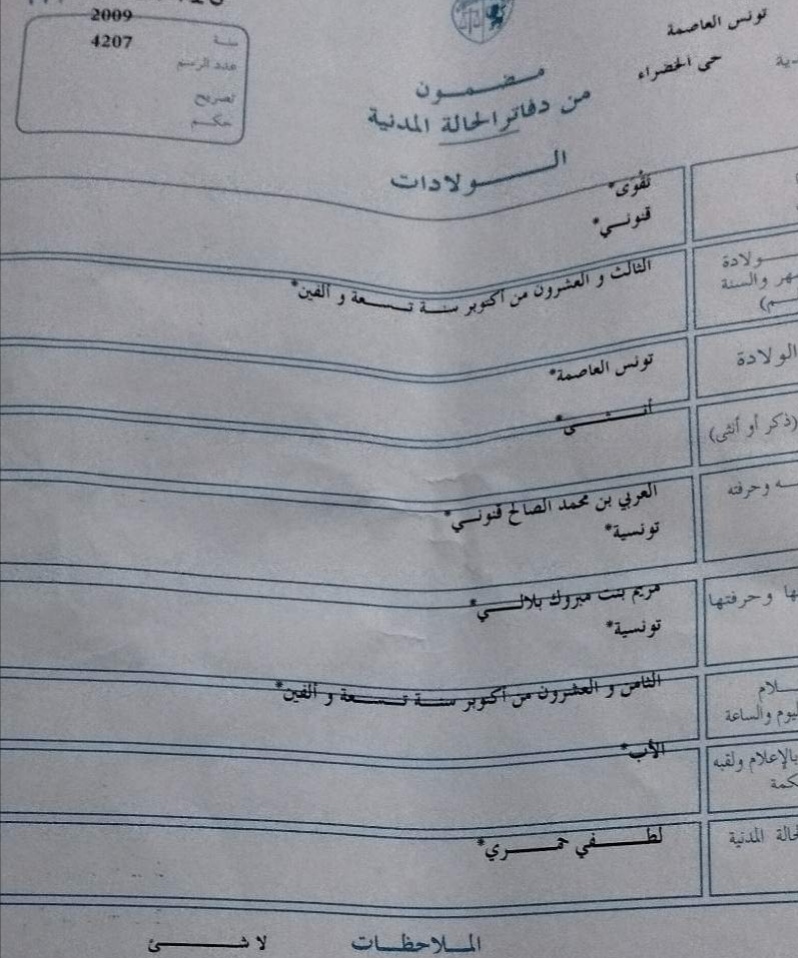 تونس العاصمة
حي الخضراء
2009
سنة
4207
عدد الرسم
تصريح
حكم
مضمون
من دفاتر الحالة المدنية
الولادات
تقوى*
قنوني*
الثالث و العشرون من أكتوبر سنة تسعة و ألفين*
ولادة
والسنة
الولادة
تونس العاصمة*
(ذكر أو أنثى)
أنثى*
وحرفته
العربي بن محمد الصالح قنوني*
تونسية*
وحرفتها
مريم بنت مبروك بلالي*
تونسية*
الثامن و العشرون من أكتوبر سنة تسعة و ألفين*
والساعة
بالإعلام ولقبه
الأب*
المدنية
لطفي حمري*
الملاحظات
لا شئ